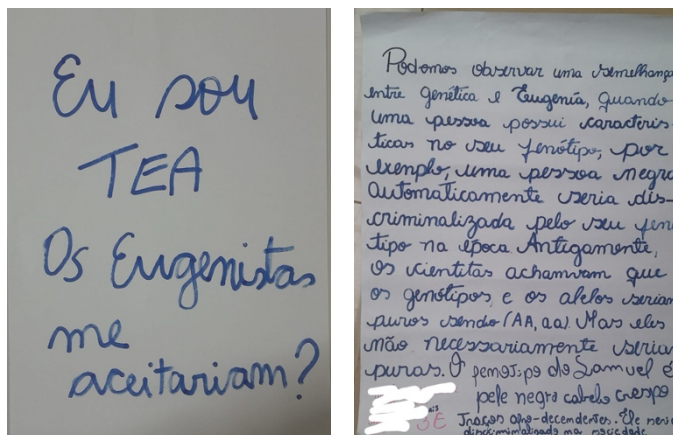 Eu sou
TEA
Os Eugenistas
me
aceitariam?
Podemos observar uma semelhança
entre genética e Eugenia, quando
uma pessoa possui caracterís-
ticas no seu fenótipo, por
exemplo, uma pessoa negra
automaticamente seria dis-
criminalizada pelo seu fenó
tipo na época. Antigamente,
os cientitas achavam que
os genótipos e os alelos seriam
puros sendo (AA, aa). Mas eles
não necessariamente seriam
puras. O penotipo do Samuel é
pele negro cabelo crespo
Traços afro-decendentes. Ele seria
discriminalizado na sociedade